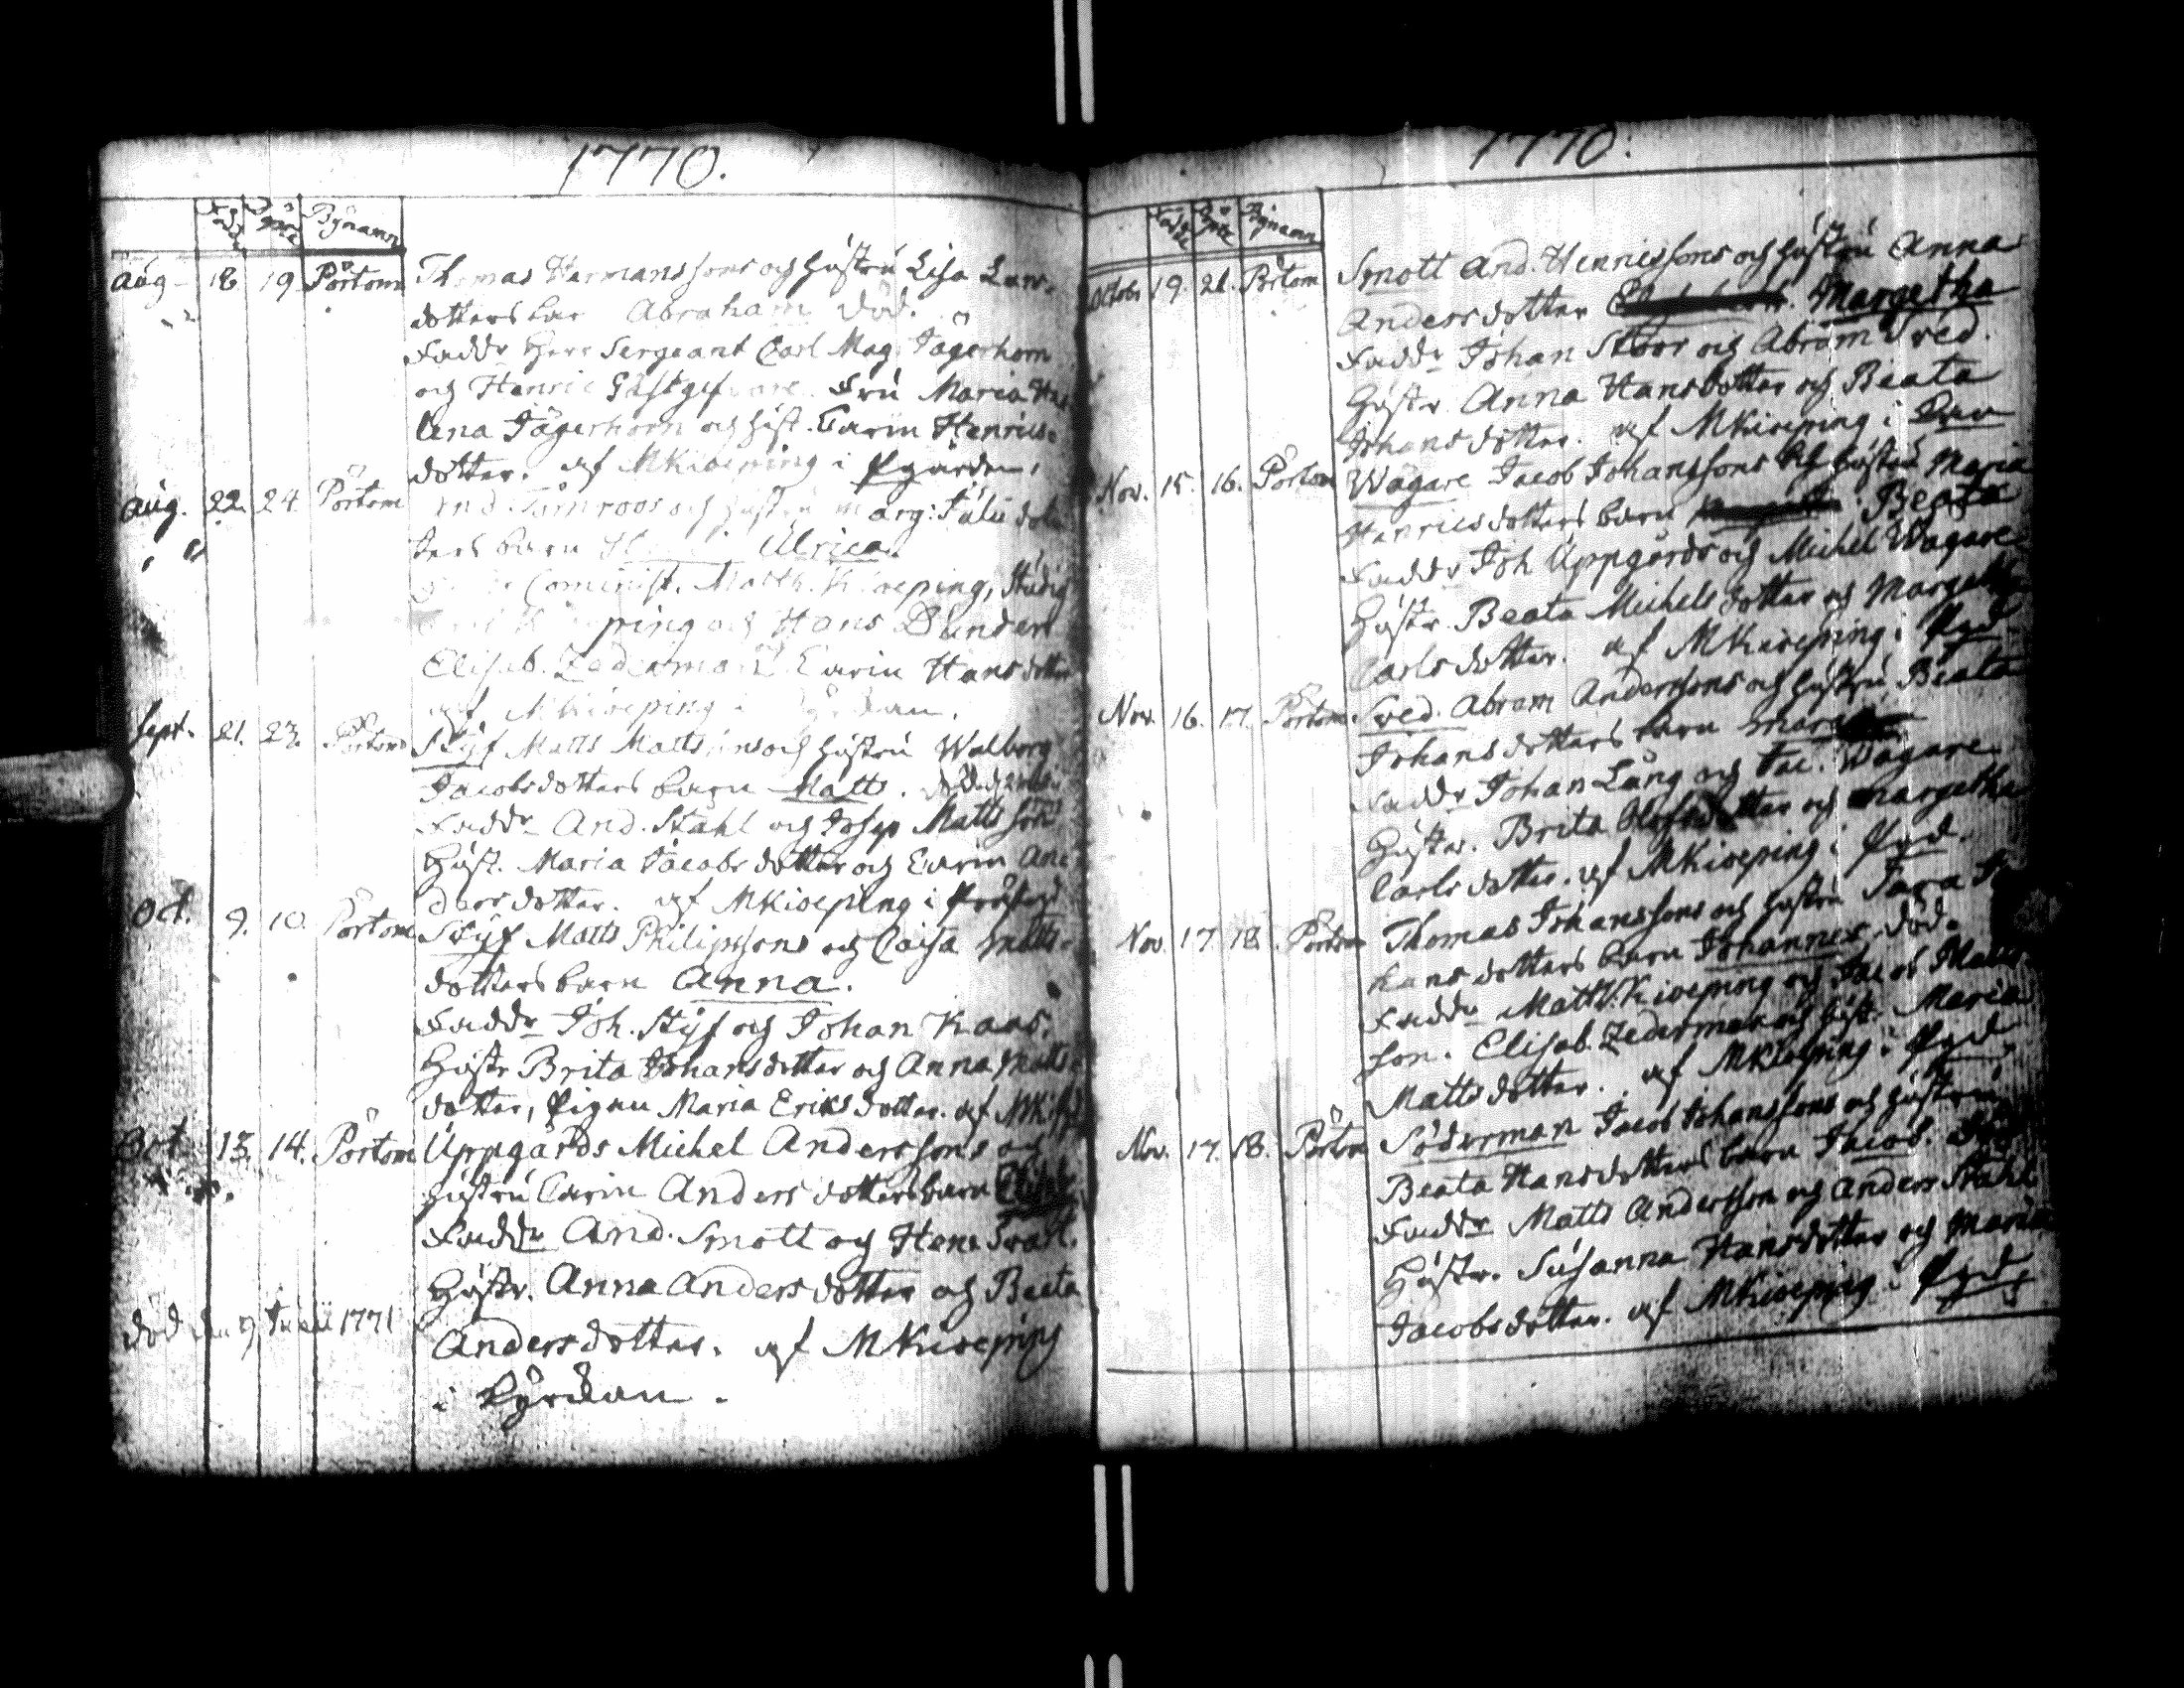 1770.
Född Döpte Bÿnamn
Aug 18 19 Pörtom Thomas Harmanssons och hustru Lisa Lars-
dotters bar Abraham död.
Faddr Herr Sergeant Carl Mag. Jägerhorn
och Henric Gästgif Fru Maria He
lena Jägerhorn och hust. Carin Henrics-
dotter. af MKiöeping i Pgården.
Aug. 22. 24 Pörtom och hustru Marg: Juliidot
ters barn Ulrica.
Cominist. Matth. Kiöeping, Studios
ping och Hans Dunder
Elisab. Zederman Carin Hansdotter
af MKiöeping i
Sept. 21. 23. Pörtom Stÿf Matts Mattssons och hustru Walborg
Jacobsdotters barn Matts. död
Faddr And. Stahl och Josep Mattsson
Hust. Maria Jacobsdotter och Carin An-
dersdotter. af MKiöeping i Prästgd
Oct. 9. 10. Pörtom Stÿf Matts Philipssons och Caisa Matts-
dotters barn Anna.
Faddr Joh. Stÿf och Johan Kaas.
Hustr Brita Johansdotter och Anna Matts-
dotter, Pigan Maria Eriksdotter. af MKi
Oct 13. 14. Pörtom Uppgårds Michel Anderssons och
hustru Carin Andersdotters barn
Faddr And. Smott och Hans Svart.
Hustr. Anna Andersdotter och Beata
död den 9 Julii 1771
Andersdotter. af MKiöeping
i Kÿrckan.
1770.
Födde Döpte Bÿnamn
Octobr 19. 21. Pörtom Smott And. Henricssons och hustru Anna
Andersdotter Margetha
Faddr Johan Stoor och Abram Sved.
Hustr. Anna Hansdotter och Beata
Johansdotter. af MKiöeping i
Nov. 15. 16. Pörtom Wägare Jacob Johanssons och hustru Maria
Henricsdotters barn Beata
Faddr Joh Uppgårds och Michel Wägare
Hustr. Beata Michelsdotter och Margetha
Carlsdotter. af MKiöeping i Pgd
Nov. 16. 17. Pörtom Sved. Abram Anderssons och hustru Beata
Johansdotters barn
Faddr Johan Lång och Jac. Wägare
Hustr. Brita Olofsdotter och Margetha
Carlsdotter. af MKiöeping i Pgd.
Nov. 17. 18. Pörtom Thomas Johanssons och hustru Sara Jo
hansdotters barn Johannes död.
Faddr Matth. Kiöeping och Jacob Matts-
son. Elisab. Zederman och hust. Maria
Mattsdotter. af MKiöeping i Pgd.
Nov. 17. 18. Pörtom Söderman Jacob Johanssons och hustru
Beata Hansdotters barn Jacob.
Faddr Matts Andersson och Anders Stahl
Hustr. Susanna Hansdotter och Maria
Jacobsdotter. af MKiöeping i Pgd.